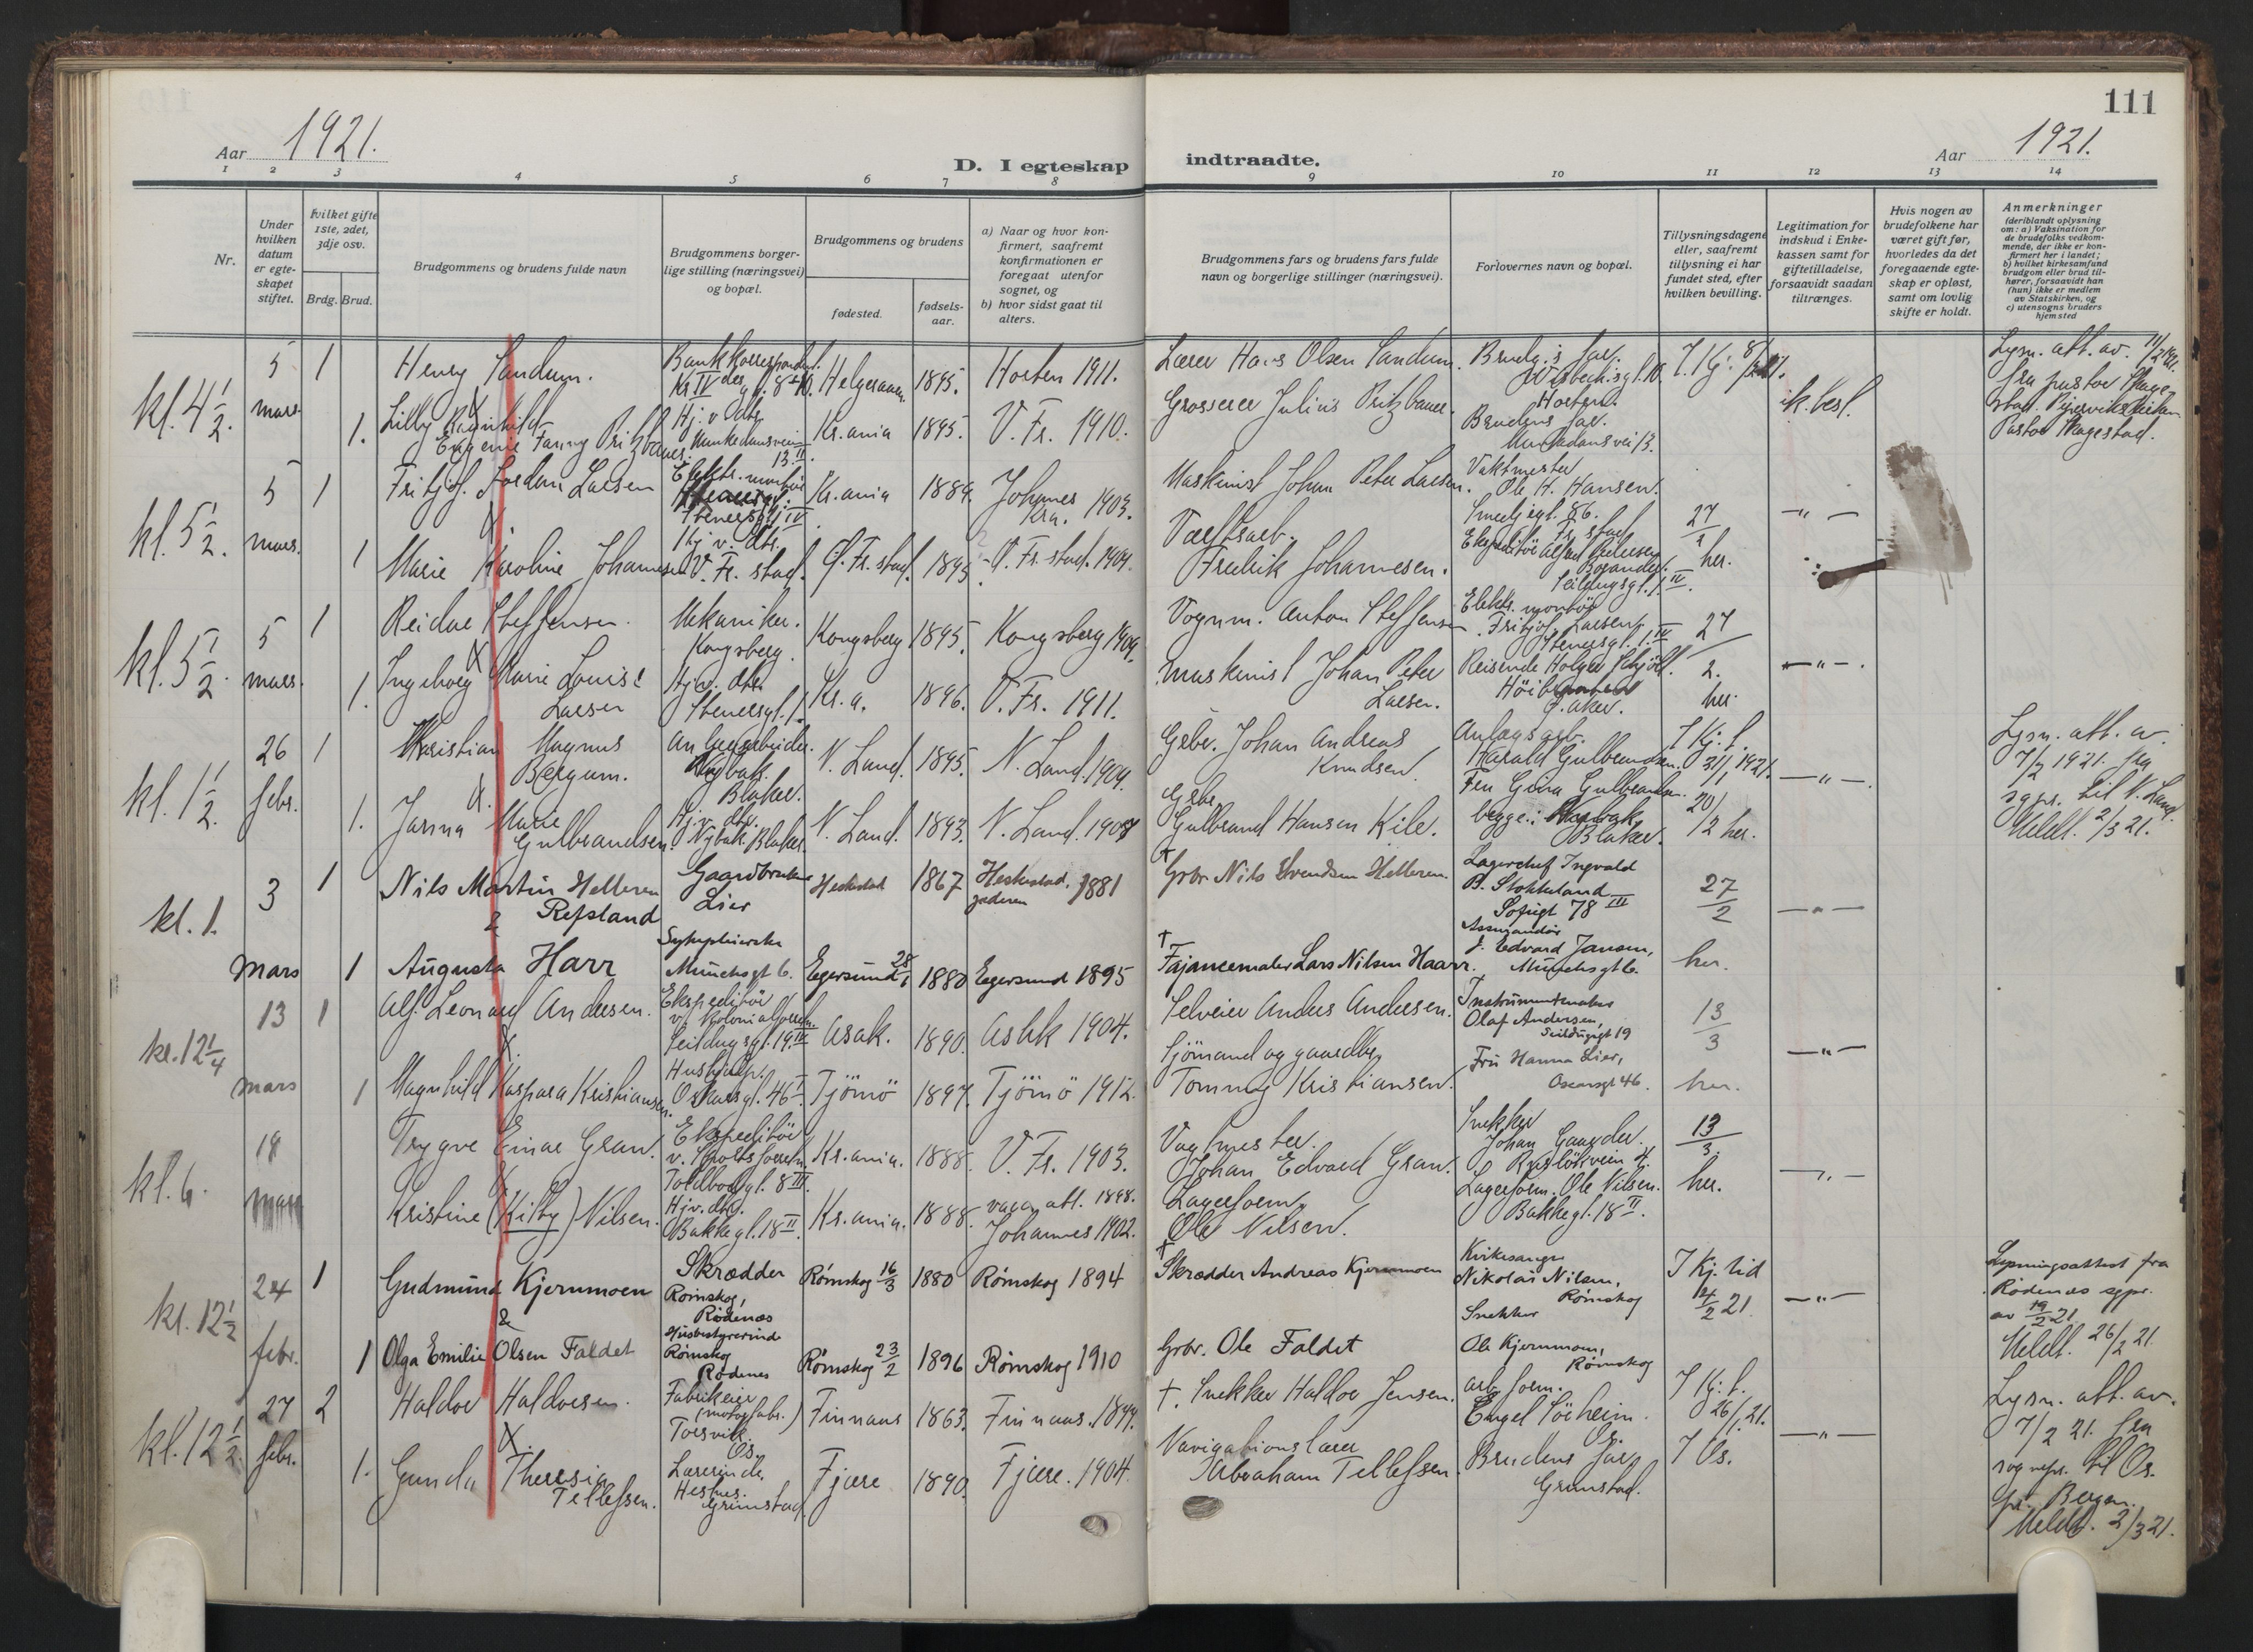 111
Aar 1921.
D. I egteskap indtraadte.
Aar 1921.
1 2 3 4 5 6 7 8 9 10 11 12 13 14
Nr.
Under hvilken datum er egteskapet stiftet.
Hvilket gifte 1ste, 2det, 3dje osv.
Brdg. Brud.
Brudgommens og brudens fulde navn
Brudgommens borgerlige stilling (næringsvei) og bopæl.
Brudgommens og brudens
fødested.
fødselsaar.
a) Naar og hvor konfirmert, saafremt konfirmationen er foregaat utenfor sognet, og
b) hvor sidst gaat til alters.
Brudgommens fars og brudens fars fulde navn og borgerlige stillinger (næringsvei).
Forlovernes navn og bopæl.
Tillysningsdagene eller, saafremt tillysning ei har fundet sted, efter hvilken bevilling.
Legitimation for indskud i Enkekassen samt for giftetilladelse, forsaavidt saadan tiltrænges.
Hvis nogen av brudefolkene har været gift før, hvorledes da det foregaaende egteskap er opløst, samt om lovlig skifte er holdt.
Anmerkninger
(deriblandt oplysning om: a) Vaksination for de brudefolks vedkommende, der ikke er konfirmert her i landet;
b) hvilket kirkesamfund brudgom eller brud tilhører, forsaavidt han (hun) ikke er medlem av Statskirken, og
c) utensogns bruders hjemsted
kl. 4 1/2. 5 mars 1 Henry Sandum. Helgeraaen 1895. Horten 1911. Lærer Hans Olsen Sandum. Brudg.s far. Horten. ik. besl.
1. Lilly Ragnhild Eugenie Fanny Pritzbauer. Hj. v. dtr. Munkedamsveien 13 II. Kr.ania 1895. V. Fr. 1910. Grosserer Julius Pritzbauer. Brudens far. Munkedamsvei 13.
Lysn. att. av 11/2 1921. fra pastor Skagestad.
Pastor Skagestad.
kl. 5 1/2. 5 mars. 1 Fritjof Jordan Larsen Elektr. montør Stenersgt. 1 IV Kr.ania 1889. Johannes Kra. 1903. Maskinist Johan Peter Larsen. Vaktmester Ole H. Hansen. Smedjegt. 8b. 27/2 her. — " —
1 Marie Karoline Johannesen Hj. v. dtr. V. Fr. stad. Ø. Fr. stad. 1895. Ø. Fr. stad. 1909. Værftsarb. Fredrik Johannesen. Seildugsgt. 1 IV.
kl. 5 1/2. 5 mars. 1 Reidar Steffensen. Mekaniker. Kongsberg. Kongsberg 1895. Kongsberg 1909. Vognm. Anton Steffensen Elektr. montør Fritjof Larsen, Stenersgt. 1. IV 27/2. her. — " —.
1. Ingeborg Marie Louise Larsen Hj. v. dtr. Stenersgt. 1. Kr.a. 1896. V. Fr. 1911. Maskinist Johan Peter Larsen. Reisende Holger
kl. 1 1/2. 26 febr. 1 Kristian Magnus Bergum. Anlegsarbeider. Nybak. Blaker. N. Land. 1895. N. Land. 1909. Grbr. Johan Andreas Knudsen. Anlægsarb. Harald Gulbrandsen. I Kj. t. 31/1 1921. — " —.
1. Jarina Marie Gulbrandsen. Hj. v. dtr. Nybak. Blaker. N. Land. 1893. N. Land. 1907 Grbr. Gulbrand Hansen Kile. Fru Gina Gulbrandsen. begge: Nybak, Blaker. 20/2 her.
Lysn. att. av 7/2 1921. fra sgpr. til N. Land. Meldt. 2/3 21.
kl. 1. 3 mars 1 Nils Martin Helleren & Refsland Gaardbruker Lier Heskestad 1867 Heskestad. Jæderen 1881 † Grbr. Nils Svendsen Helleren. Lagerchef Ingvald B. Stokkeland Sofiegt 78 III 27/2 her. — " —
1 Augusta Harr Sykepleierske Munchsgt 6. Egersund 28/1 1880 Egersund 1895 † Fajancemaler Lars Nilsen Haarr. Assurandør J. Edvard Jansen, Munchsgt 6.
kl. 12 1/4 13 mars 1 Alf Leonard Andersen. Ekspeditør v. kolonialforretn. Seildugsgt. 19 IV Asak. 1890. Asak 1904. Selveier Anders Andersen. Instrumentmaker Olaf Andersen, Seildugsgt 19 13/3 her. — " —
1 Magnhild Kaspara Kristiansen. Hushjælp. Oskarsgt. 46 I. Tjömö 1897. Tjömö 1912. Sjömand og gaardbr. Tommy Kristiansen. Fru Hanna Lier, Oscarsgt 46.
kl. 6. 18 mars Trygve Einar Gran. Ekspeditør v. Toldbodgt. 8 III. Kr.ania. 1888. V. Fr. 1903. Vagtmester. Johan Edvard Gran. Snekker Johan Gaarder. 13/3. her. — " —
Kristine (Kitty) Nilsen. Hj v. dtr. Bakkegt. 18 II. Kr.ania. 1888. vacc. att. 1898. Johannes 1902. Lagerform. Ole Nilsen. Lagerform. Ole Nilsen. Bakkegt. 18 II.
kl. 12 1/2 24 febr. 1 Gudmund Kjernmoen & Skrædder Römskog, Rødenes Römskog 16/3 1880 Römskog 1894 † Skrædder Andreas Kjernmoen Kirkesanger Nikolai Nilsen, Rømskog I Kj. tid 4/2 21. — " —
1 Olga Emilie Olsen Faldet Husbestyrerinde Rømskog Rødenes Römskog 23/2 1896 Römskog 1910 Grbr. Ole Faldet Snekker Ole Kjernmoen, Römskog
Lysningsattest fra Rödenes sgpr. av 19/2 21. Meldt. 26/2 21.
kl. 12 1/2. 27 febr. 2 Haldor Haldorsen. Fabrikeier (motorfabr.) Torsvik. Os. Finnaas 1863. Finnaas. 1877. †. Snekker Haldor Jensen. Arb. form. Engel Söreheim. Os. I Kj. t. 26/1 21. I Os. — " —
1. Gunda Theresia Tellefsen. Lærerinde. Hesnes. Grimstad. Fjære 1890. Fjære. 1904. Navigationslærer Abraham Tellefsen. Brudens far, Grimstad.
Lysn. att. av. 7/2 21. fra sognepr. til Os. pr. Bergen. Meldt. 2/3 21.